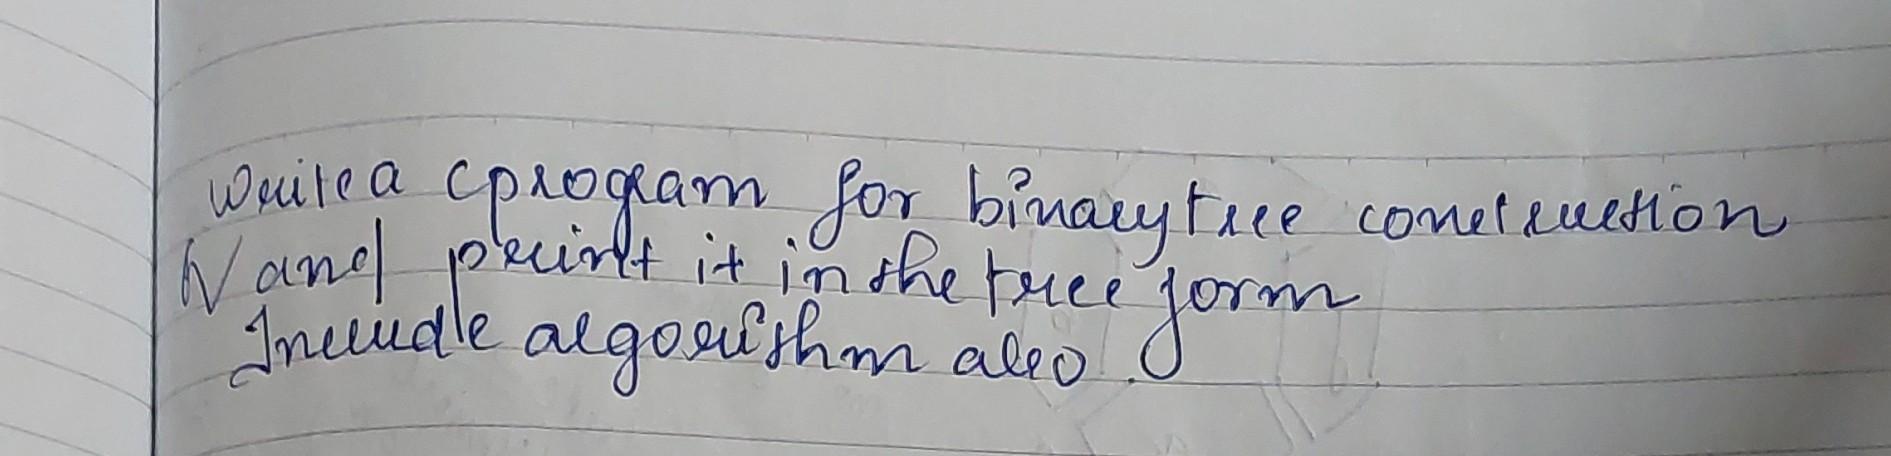 Write a c program for binary tree construction
and print it in the tree form
Include algorithm also.